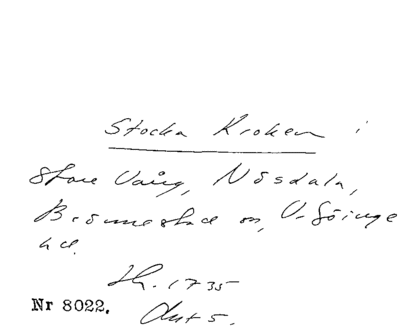 Stocka Kroken i
Store Vång, Nösdala,
Brönnestad sn, V. Göinge
hd.
Th. 1735
Akt 5.
Nr 8022.